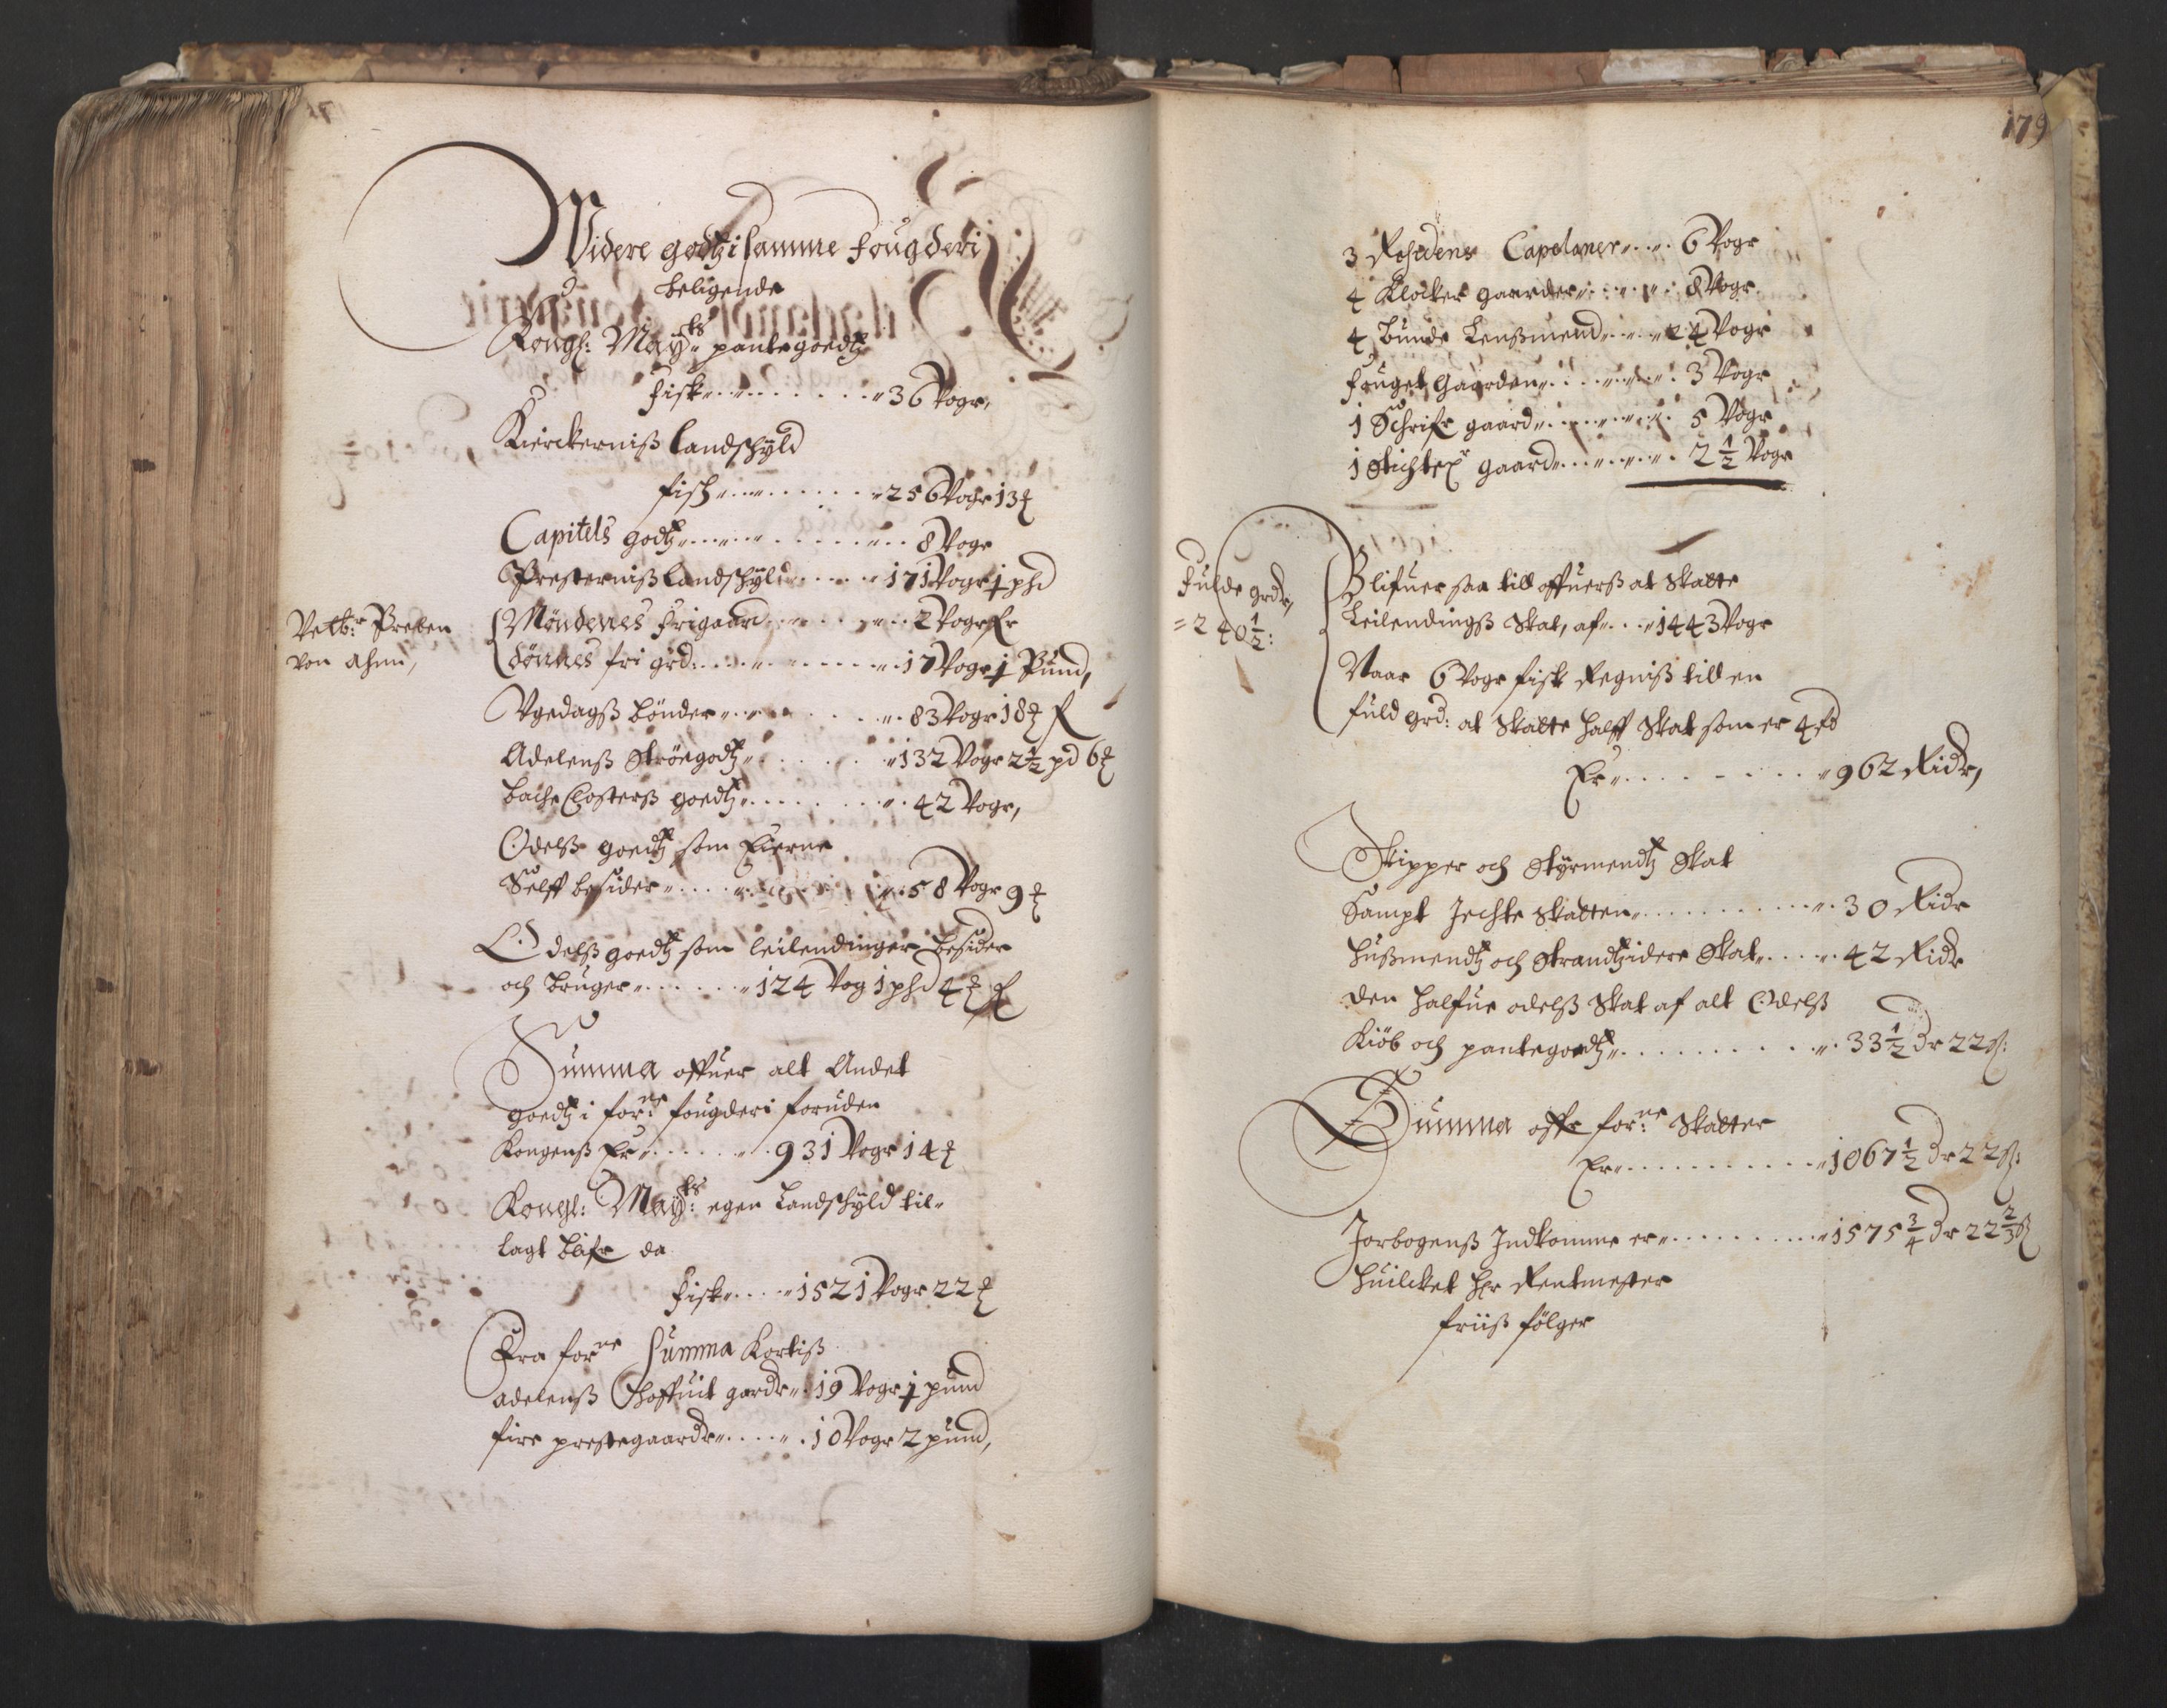 Widere godtz i samme fougderi
beligende
Kongl: May:ts pantegoedtz
fisk 36 Voger,
Kierckerniss landschyld
fisk 256 Voger 13
Capitels godtz 8 Voger
Presterniss landschyld 171 Voger 1 phd
Welb:r Preben
von Ahnn,
Möndenes frigaard 2 Voger
Sönnes fri grd: 17 Voger 1 Pund,
Vgedagss bönder 83 Voger 18
Adelenss Ströegodtz 132 Voger 2½ pd 6
Bache Closterss goedtz 42 Voger,
Odelss goedtz som Eierne
Selff besider 58 Voger 9
Odelss goedtz som leilendinger besider
och bruger 124 Vog 1 phd 4
Summa offuer alt Andet
goedtz i for:ne fougderi foruden
Kongenss Er 931 Voger 14
Kongl: May:ts egen Landschyld til-
lagt blifr da
fisk 1521 Voger 22
Fra for:ne Summa Kortiss
adelenss Hoffuit gardr 19 Voger 1 pund
fire prestegaarde 10 Voger 2 pund,
179
3 Residens Capelaner 6 Voger
4 Klocker gaarder 8 Voger
4 Bunde Lenssmend 24 Voger
fouget Gaarden 3 Voger
1 Schrifr gaard 5 Voger
1 Stichtz gaard 2½ Voger
fulde grdr,
= 240½:
Blifuer saa till offuerss at skatte
Leilendingss Skat, af 1443 Voger
Naar 6 Voger fisk Regniss till en
fuld grd: at Skatte halff Skat som er 4
Er 962 Ridr,
Skipper och Styrmendtz Skat
Sampt Jechte Skatten 30 Ridr
Hussmendtz och Strandtzidere Skat 42 Ridr
Den halfue odelss Skat af alt Odelss
Kiöb och pantegoedtz 33½ Dr 22 ß:
Summa offr for:ne Skatter
Er 1067½ Dr 22 ß:
Jorbogenss Indkomme er 1575¾ Dr 22⅔ ß
Huilcket hr Rentmester
friiss fölger